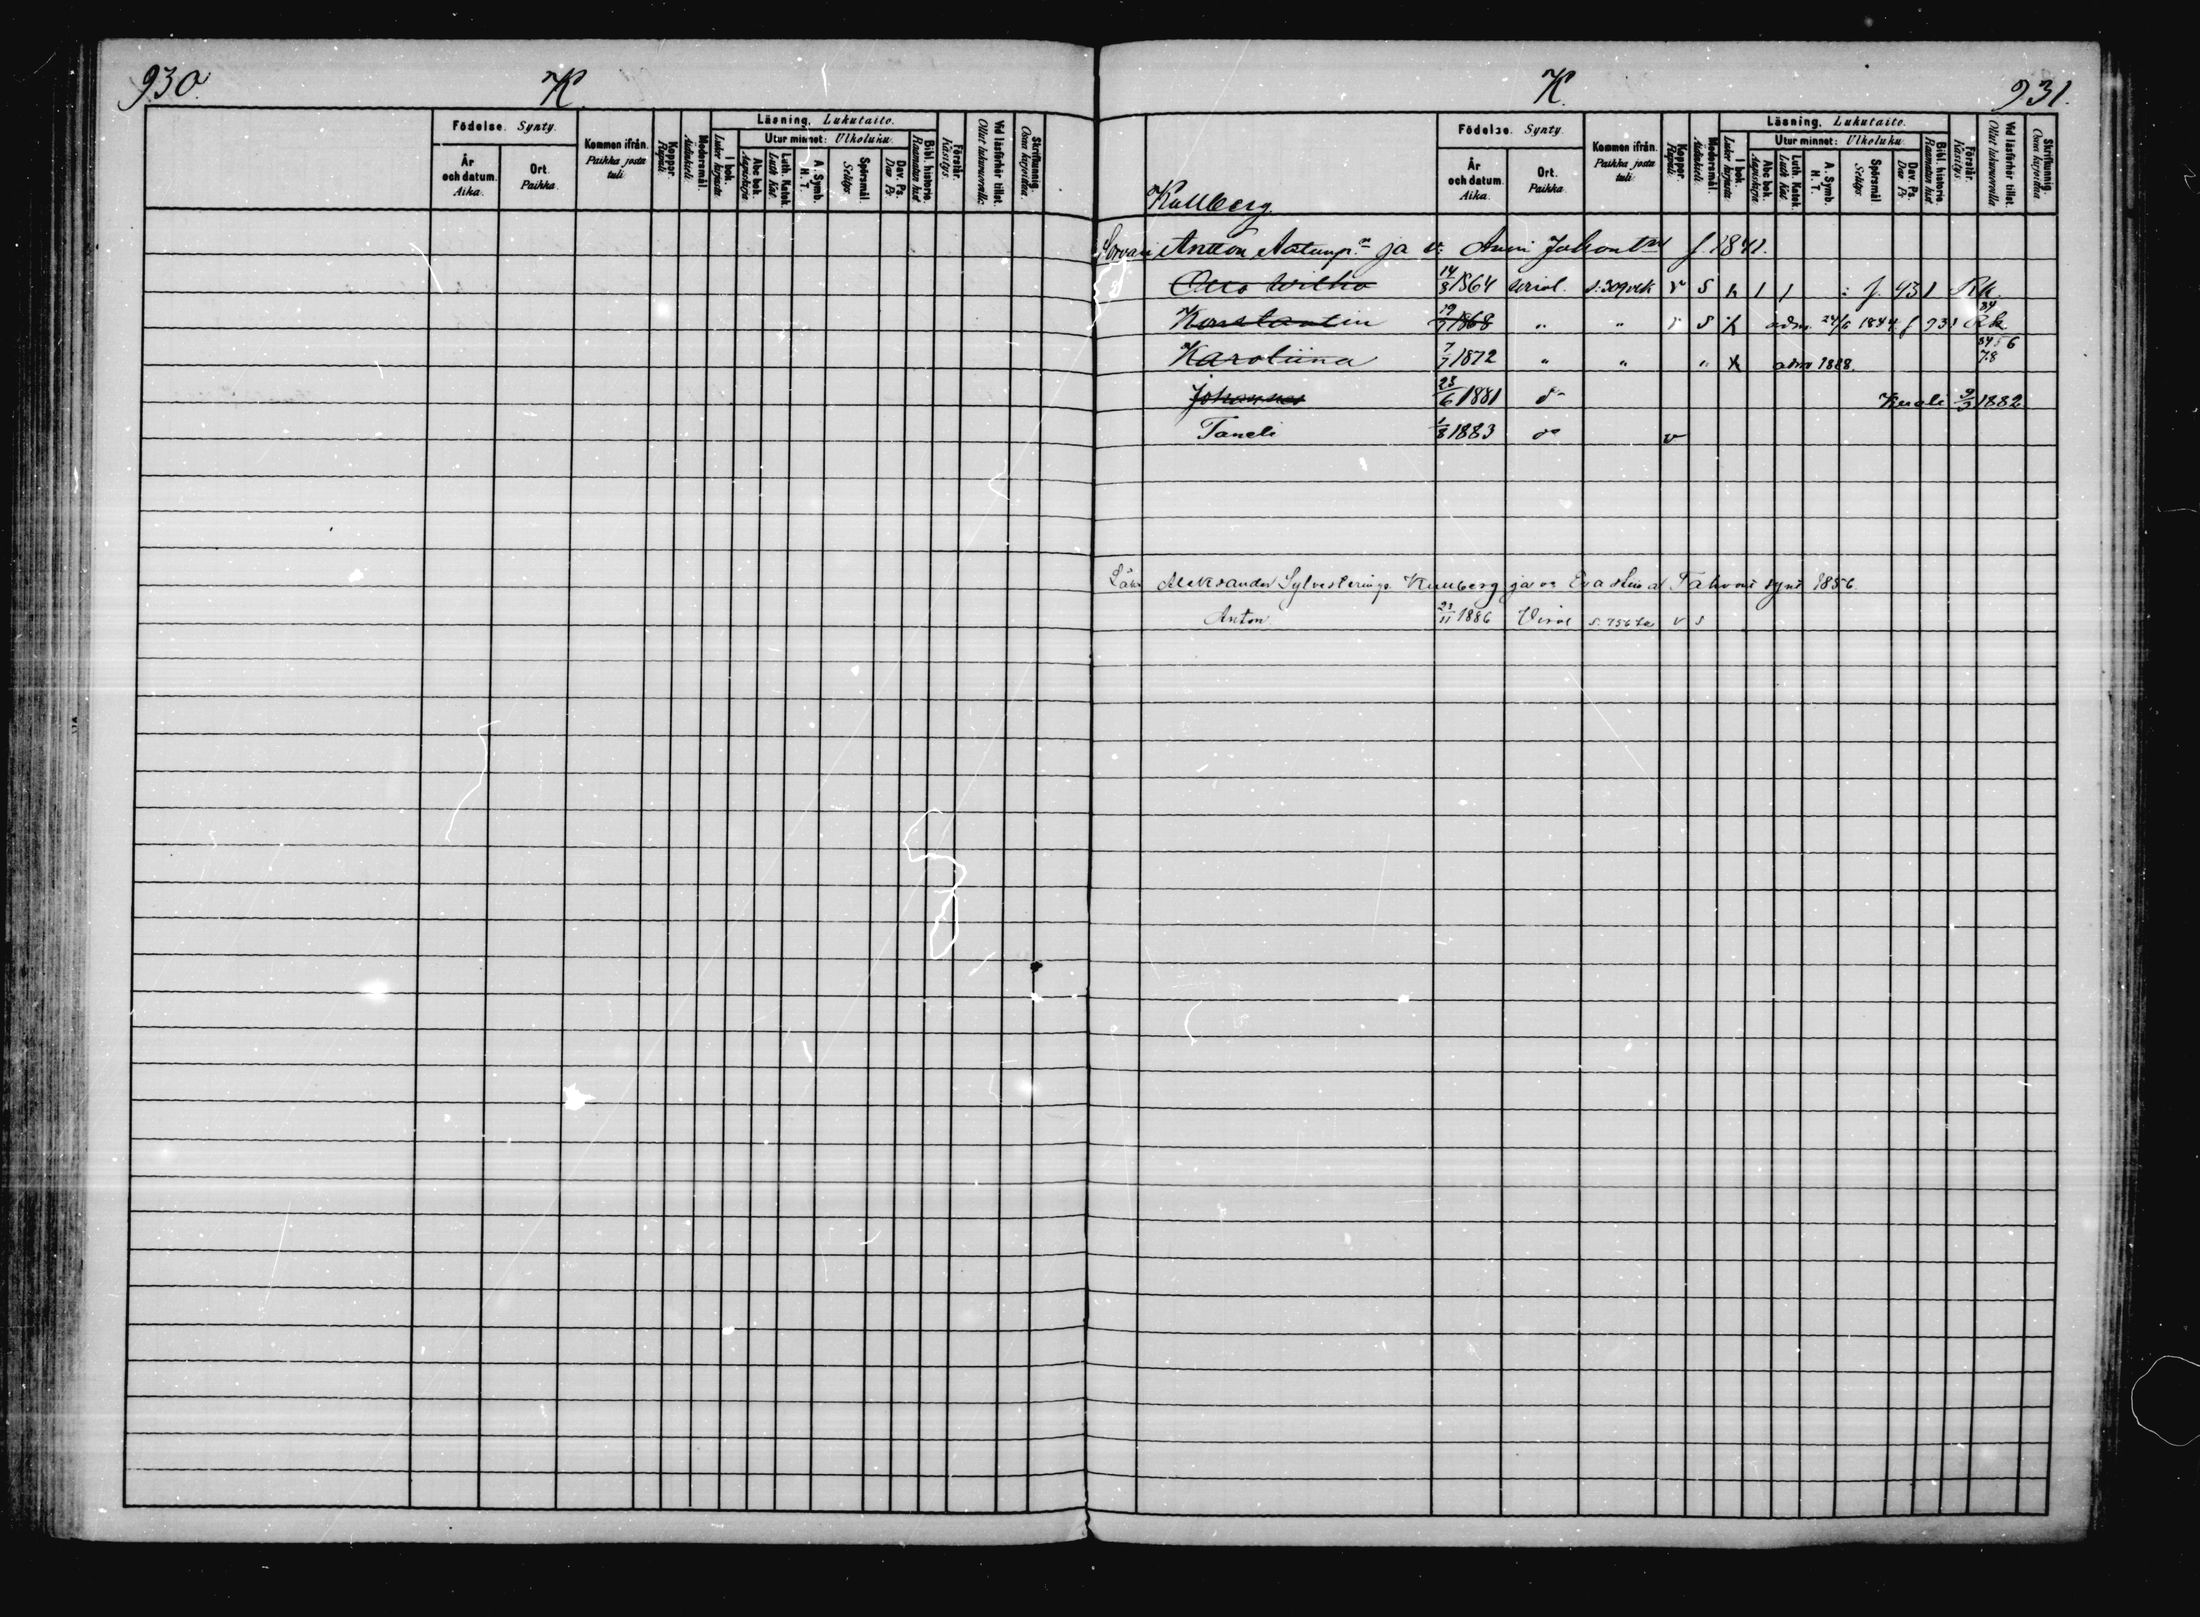 930.
K.
Födelse. Synty.
År och datum. Aika.
Ort. Paikka.
Kommen ifrån. Paikka josta tuli.
Koppor. Rupuli.
Modersmål. Äidinkieli.
Läsning. Lukutaito.
I bok. Luker kirjasta.
Utur minnet: Ulkoluku.
Abc bok. Aapiskirja
Luth. Katek. Luth. Kat.
A. Symb. H. T.
Spörsmål. Selitys
Dav. Ps. Dav. Ps.
Bibl. historie. Raamatun hist
Förstår. Käsitys.
Vid läsförhör tillst. Ollut lukuvuorolla.
Skriftkunnig. Osaa kirjoittaa.
K.
931.
Födelse. Synty.
År och datum. Aika.
Ort. Paikka.
Kommen ifrån. Paikka josta tuli.
Koppor. Rupuli.
Modersmål. Äidinkieli.
Läsning. Lukutaito.
I bok. Luker kirjasta.
Utur minnet: Ulkoluku.
Abc bok. Aapiskirja
Luth. Katek. Luth. Kat.
A. Symb. H. T.
Spörsmål Selitys
Dav. Ps. Dav Ps
Bibl. historie. Raamatun hist
Förstår. Käsitys.
Vid läsförhör tillst. Ollut lukuvuorolla
Skriftkunnig. Osaa kirjoittaa
Kullberg.
Sorvari Antton Aatunp. ja v: Anni f. 1841.
Otto Wilho 14/8 1864 s: 309 v S 1 1 f. 931 Rk.
Konstantin 19/7 1868 " " r S adm. 24/6 f 931 Rk
Karoliina 7/7 1872 " " " adm 1888. 78
Johannes 23/6 1881 do Kuoli 9/9 1882
Taneli 1/8 1883 do v
Aleksander Sylvesterinp. Kullberg ja vo Eva Tahvont synt 1856.
Anton 23/11 1886 s. 756 v s